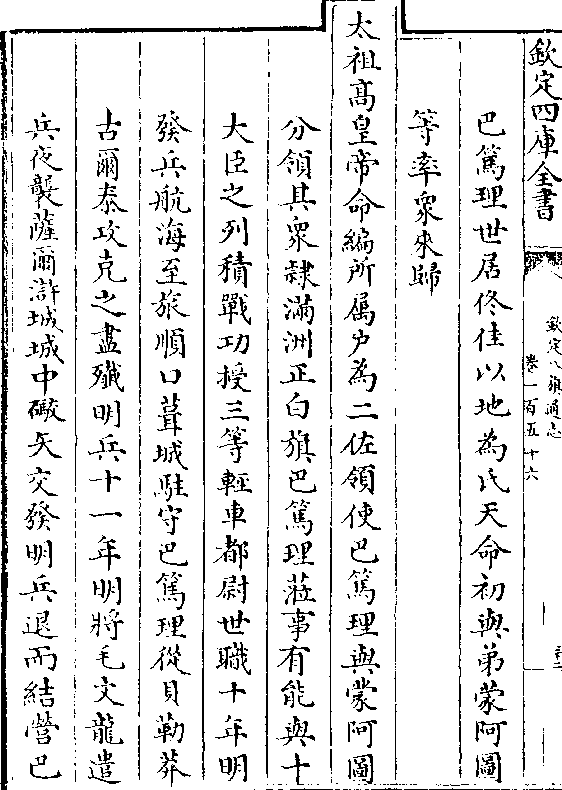 欽定四庫全書
欽定八旗通志
卷一百五十六
巴篤理世居佟佳以地為氏天命初與弟蒙阿圖
等率衆來歸
太祖高皇帝命編所屬戶為二佐領使巴篤理與蒙阿圖
分領其衆隷滿洲正白旗巴篤理蒞事有能與十
大臣之列積戰功授三等輕車都尉世職十年明
發兵航海至旅順口葺城駐守巴篤理從貝勒莽
古爾泰攻克之盡殲明兵十一年明將毛文龍遣
兵夜襲薩爾滸城城中礮矢交發明兵退而結營巴